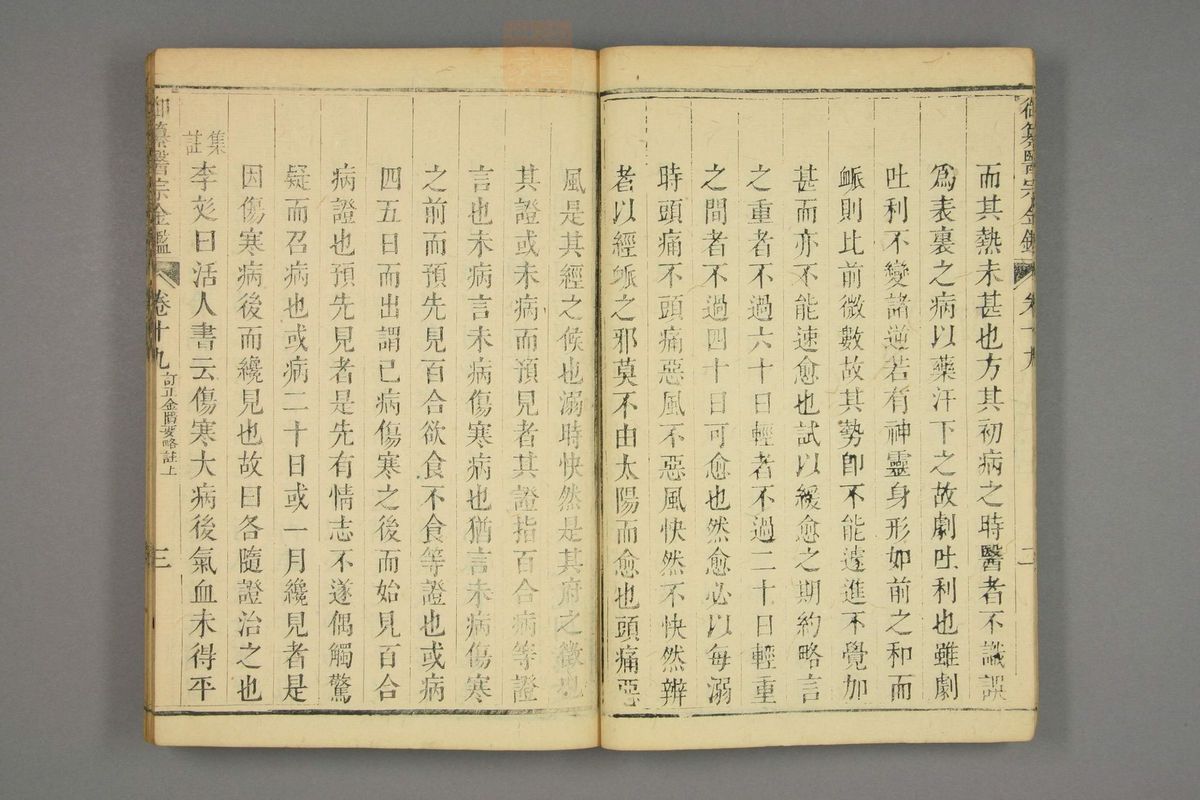 御纂醫宗金鑑
卷十九
二
而其熱未甚也方其初病之時醫者不識誤
爲表裏之病以藥汗下之故劇吐利也雖劇
吐利不變諸逆若有神靈身形如前之和而
脈則比前微數故其勢卽不能遽進不覺加
甚而亦不能速愈也試以緩愈之期約略言
之重者不過六十日輕者不過二十日輕重
之間者不過四十日可愈也然愈必以每溺
時頭痛不頭痛惡風不惡風快然不快然辨
者以經脈之邪莫不由太陽而愈也頭痛惡
風是其經之候也溺時快然是其府之徵也
其證或未病而預見者其證指百合病等證
言也未病言未病傷寒病也猶言未病傷寒
之前而預先見百合欲食不食等證也或病
四五日而出謂已病傷寒之後而始見百合
病證也預先見者是先有情志不遂偶觸驚
疑而召病也或病二十日或一月纔見者是
因傷寒病後而纔見也故曰各隨證治之也
集註
李彣曰活人書云傷寒大病後氣血未得平
御纂醫宗金鑑
卷十九
訂正金匱要略註上
三